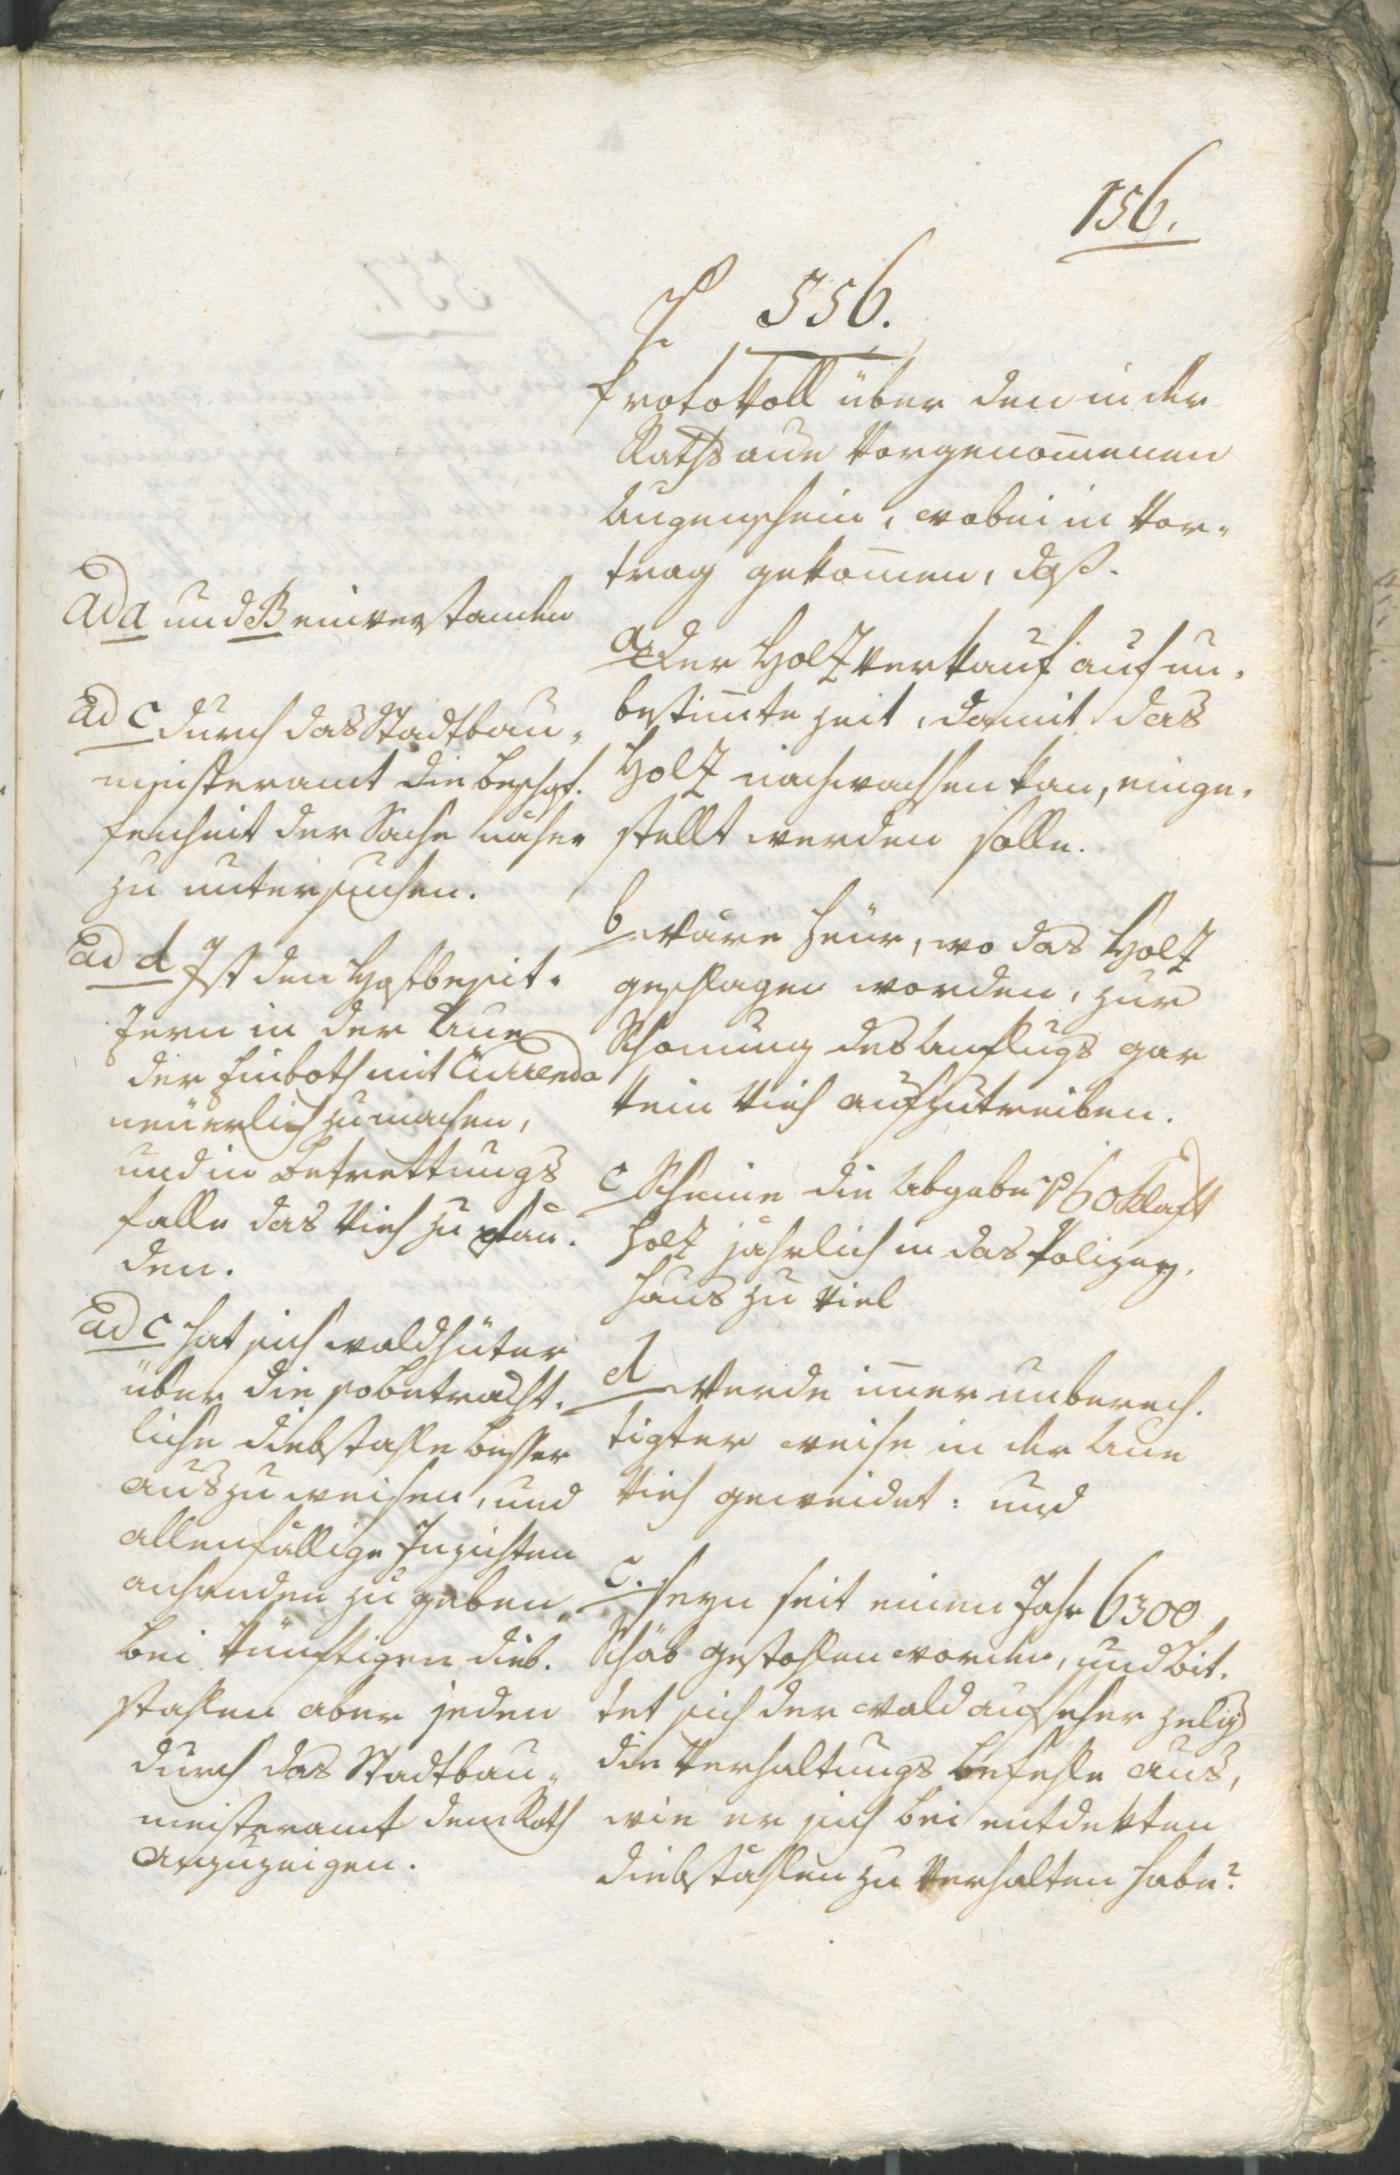 156.
556.
Protokoll über den in der
Rathsaue Vorgenommenen
Augenschein, wobei in Vor¬
trag gekommen, daß.
a Der Holzverkauf auf un¬
bestimmte Zeit, damit das
Holz nachwachsen kan, einge¬
stellt werden solle.
b wäre heur, wo das Holz
geschlagen worden, zur
Schonung des Anflugs gar
kein Vieh aufzutreiben.
c Scheine die Abgabe 60 Klaft
Holz jährlich in das Polizey¬
haus zu viel
d Werde immer unberech¬
tigter weise in der Aue
Vieh geweidet: und
e. seyn seit einem Jahr 6300
Schäb gestohlen worden, und bit¬
tet sich der Waldaufseher
die Verhaltungs befehle aus,
wie er sich bei entdekten
diebstählen zu Verhalten habe?
Ad a und B einverstanden
Ad c durch das Stadtbau¬
meisteramt die beschaf¬
fenheit der Sache näher
zu untersuchen.
Ad d Ist den Hofbesit¬
zern in der Aue
der Einboth mit Currenda
neuerlich zu machen,
und in Betrettungs
falle das Vieh zu pfän¬
den.
Ad e hat sich Waldhüter
über die so beträcht¬
liche diebstahle besser
auszuweisen, und
allenfällige Inzichten
anhanden zu geben,
bei künftigen dieb¬
stahlen aber jeden
durch das Stadtbau¬
meisteramt dem Rath
anzuzeigen.